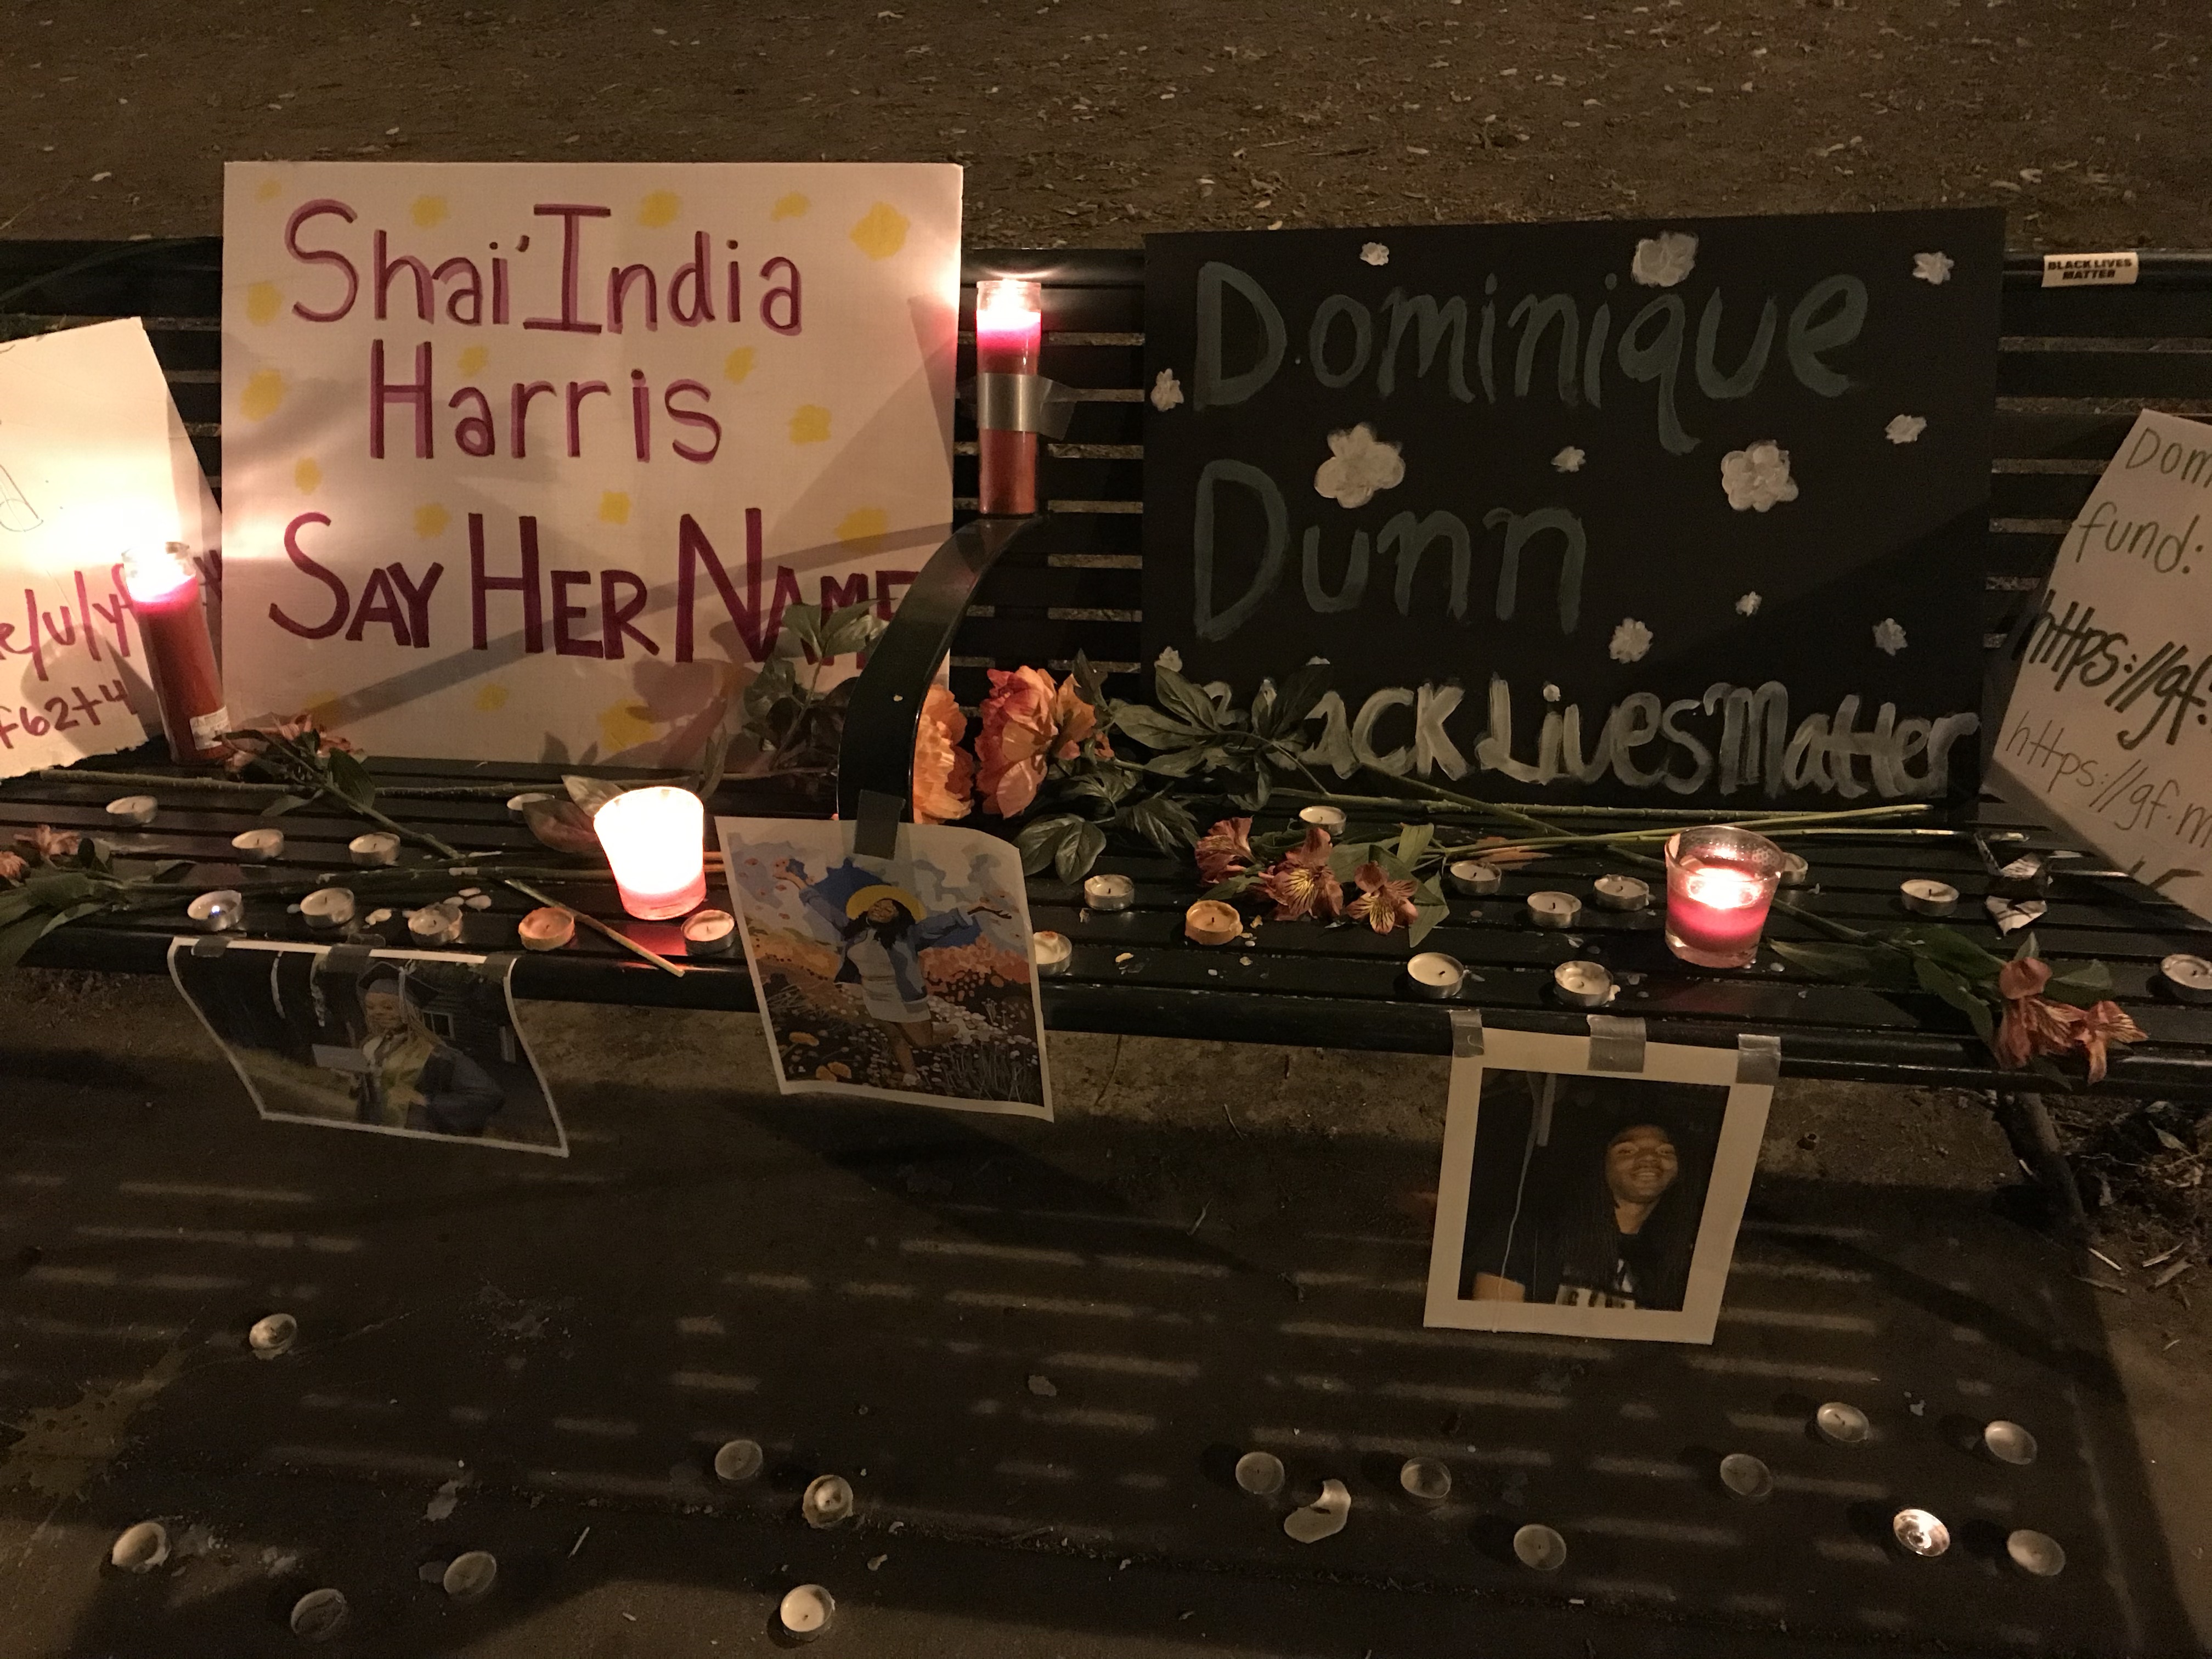 Shai'India
Harris
SAY HER NAME
Dominique
Dunn
Black Lives Matter
BLACK LIVES
MATTER
f62t4
fund:
https://gf.
https://gf.m